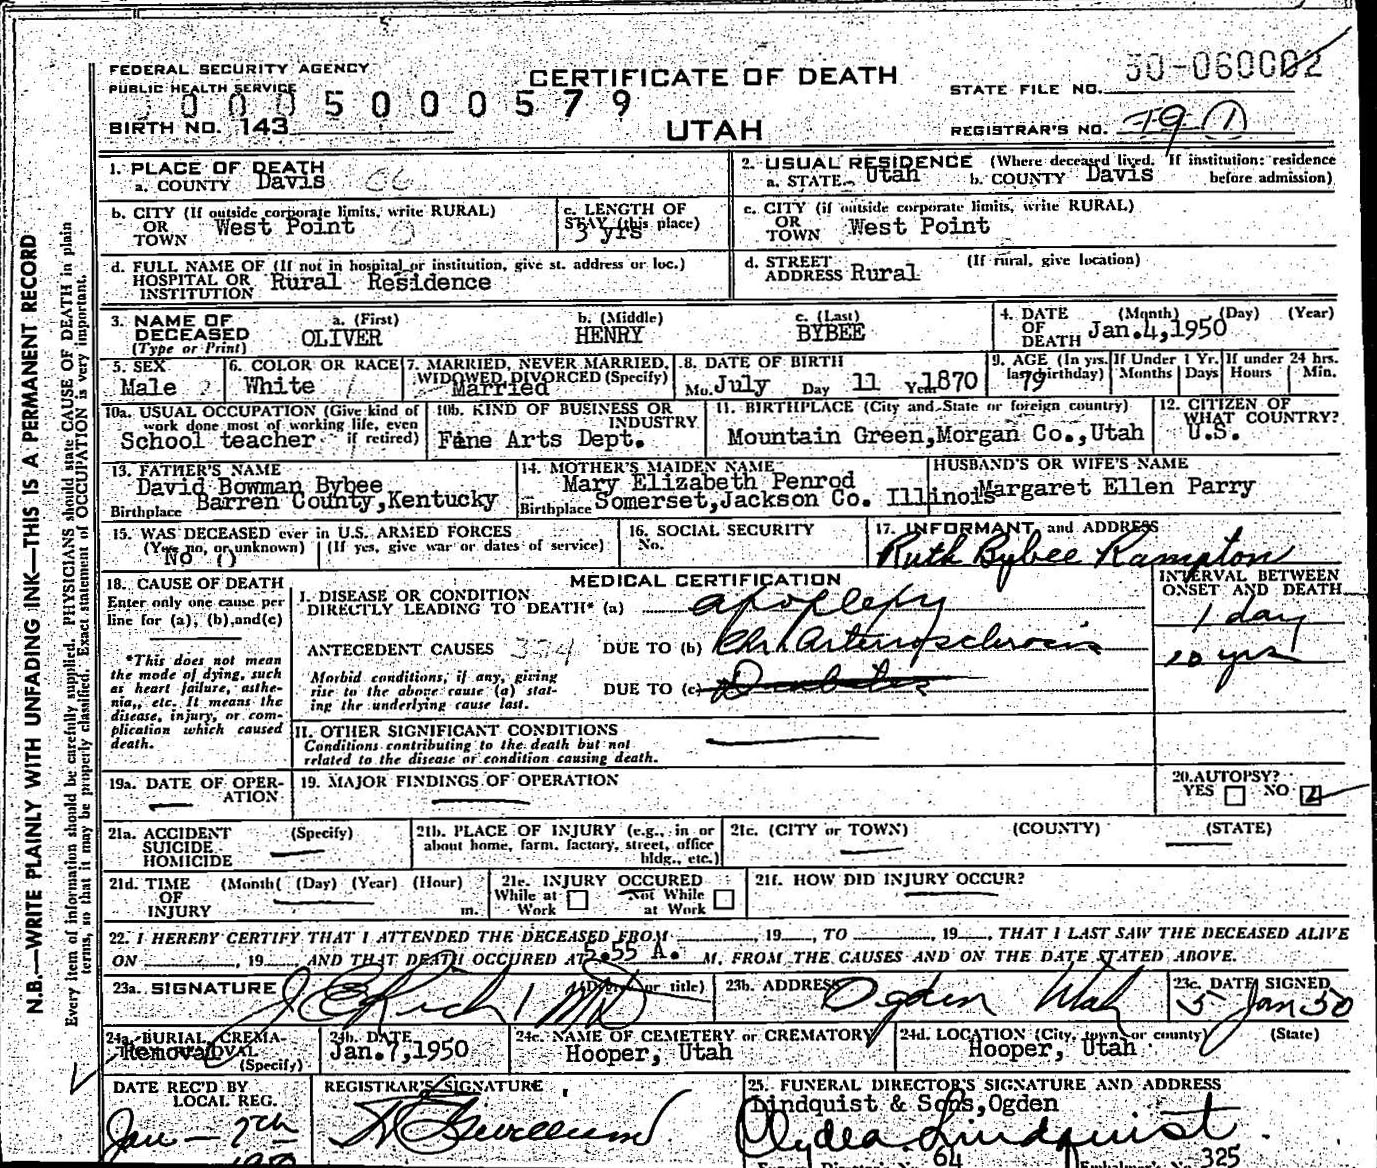 FEDERAL SECURITY AGENCY
PUBLIC HEALTH SERVICE
CERTIFICATE OF DEATH
50-060002
STATE FILE NO.
0005000579
BIRTH NO. 143
UTAH
REGISTRAR'S NO. 79
1. PLACE OF DEATH
a. COUNTY Davis
2. USUAL RESIDENCE (Where deceased lived. If institution: residence before admission)
a. STATE Utah b. COUNTY Davis
b. CITY (If outside corporate limits, write RURAL)
OR TOWN West Point
c. LENGTH OF STAY (this place)
3 yrs
c. CITY (if outside corporate limits, write RURAL)
OR TOWN West Point
d. FULL NAME OF (If not in hospital or institution, give st. address or loc.)
HOSPITAL OR INSTITUTION Rural Residence
d. STREET ADDRESS Rural (If rural, give location)
3. NAME OF DECEASED (Type or Print)
a. (First) b. (Middle) c. (Last)
OLIVER HENRY BYBEE
4. DATE OF DEATH (Month) (Day) (Year)
Jan.4,1950
5. SEX
Male
6. COLOR OR RACE
White
7. MARRIED, NEVER MARRIED, WIDOWED DIVORCED (Specify)
Married
8. DATE OF BIRTH
Mo. July Day 11 Year 1870
9. AGE (In yrs. last birthday)
79
If Under 1 Yr. Months Days
If under 24 hrs. Hours Min.
10a. USUAL OCCUPATION (Give kind of work done most of working life, even if retired)
School teacher
10b. KIND OF BUSINESS OR INDUSTRY
Fine Arts Dept.
11. BIRTHPLACE (City and State or foreign country)
Mountain Green,Morgan Co.,Utah
12. CITIZEN OF WHAT COUNTRY?
U.S.
13. FATHER'S NAME
David Bowman Bybee
Birthplace Barren County,Kentucky
14. MOTHER'S MAIDEN NAME
Mary Elizabeth Penrod
Birthplace Somerset,Jackson Co. Illinois
HUSBAND'S OR WIFE'S NAME
Margaret Ellen Parry
15. WAS DECEASED ever in U.S. ARMED FORCES
(Yes no, or unknown) (If yes, give war or dates of service)
No
16. SOCIAL SECURITY No.
17. INFORMANT and ADDRESS
Ruth Bybee Rampton
18. CAUSE OF DEATH
Enter only one cause per line for (a), (b),and(c)
*This does not mean the mode of dying, such as heart failure, asthenia,, etc. It means the disease, injury, or complication which caused death.
MEDICAL CERTIFICATION
INTERVAL BETWEEN ONSET AND DEATH
I. DISEASE OR CONDITION
DIRECTLY LEADING TO DEATH* (a) apoplexy 1 day
ANTECEDENT CAUSES 334 DUE TO (b) Chr. Arteriosclerosis 10 yrs
Morbid conditions, if any, giving rise to the above cause (a) stating the underlying cause last.
DUE TO (c) Diabetes
II. OTHER SIGNIFICANT CONDITIONS
Conditions contributing to the death but not related to the disease or condition causing death.
19a. DATE OF OPERATION
19. MAJOR FINDINGS OF OPERATION
20. AUTOPSY?
YES NO
21a. ACCIDENT SUICIDE HOMICIDE (Specify)
21b. PLACE OF INJURY (e.g., in or about home, farm, factory, street, office bldg., etc.)
21c. (CITY or TOWN) (COUNTY) (STATE)
21d. TIME OF INJURY (Month) (Day) (Year) (Hour) m.
21e. INJURY OCCURED
While at Work Not While at Work
21f. HOW DID INJURY OCCUR?
22. I HEREBY CERTIFY THAT I ATTENDED THE DECEASED FROM , 19 , TO , 19 , THAT I LAST SAW THE DECEASED ALIVE
ON , 19 , AND THAT DEATH OCCURED AT 5.55 A. M. FROM THE CAUSES AND ON THE DATE STATED ABOVE.
23a. SIGNATURE (Degree or title)
J C Rich MD
23b. ADDRESS
Ogden Utah
23c. DATE SIGNED
5 Jan 50
24a. BURIAL, CREMA- REMOVAL (Specify)
Removal
24b. DATE
Jan.7,1950
24c. NAME OF CEMETERY or CREMATORY
Hooper, Utah
24d. LOCATION (City, town, or county) (State)
Hooper, Utah
DATE REC'D BY LOCAL REG.
Jan - 7th
1950
REGISTRAR'S SIGNATURE
25. FUNERAL DIRECTOR'S SIGNATURE AND ADDRESS
Lindquist & Sons,Ogden
Lindquist
64
325
N.B.—WRITE PLAINLY WITH UNFADING INK—THIS IS A PERMANENT RECORD
Every item of information should be carefully supplied. PHYSICIANS should state CAUSE OF DEATH in plain
terms, so that it may be properly classified. Exact statement of OCCUPATION is very important.